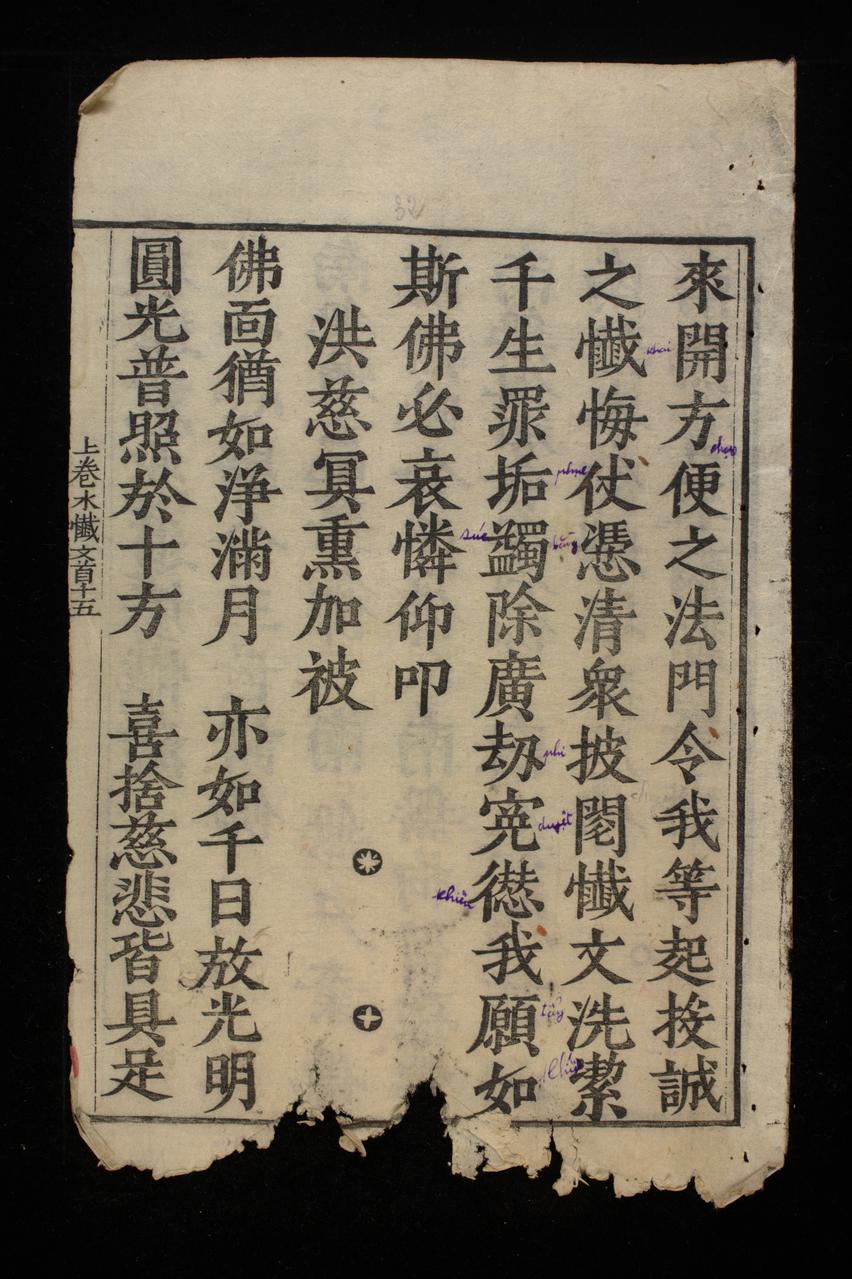 來開方便之法門令我等起投誠
之懺悔仗憑清衆披閱懺文洗潔
千生罪垢蠲除廣劫寃愆我願如
斯佛必哀憐仰叩
洪慈冥熏加被
佛面猶如淨滿月 亦如千日放光明
圓光普照於十方 喜捨慈悲皆具足
上卷水懺文首十五
32
khai
phục
bằng
súc
phi
duyệt
khiên
tẩy